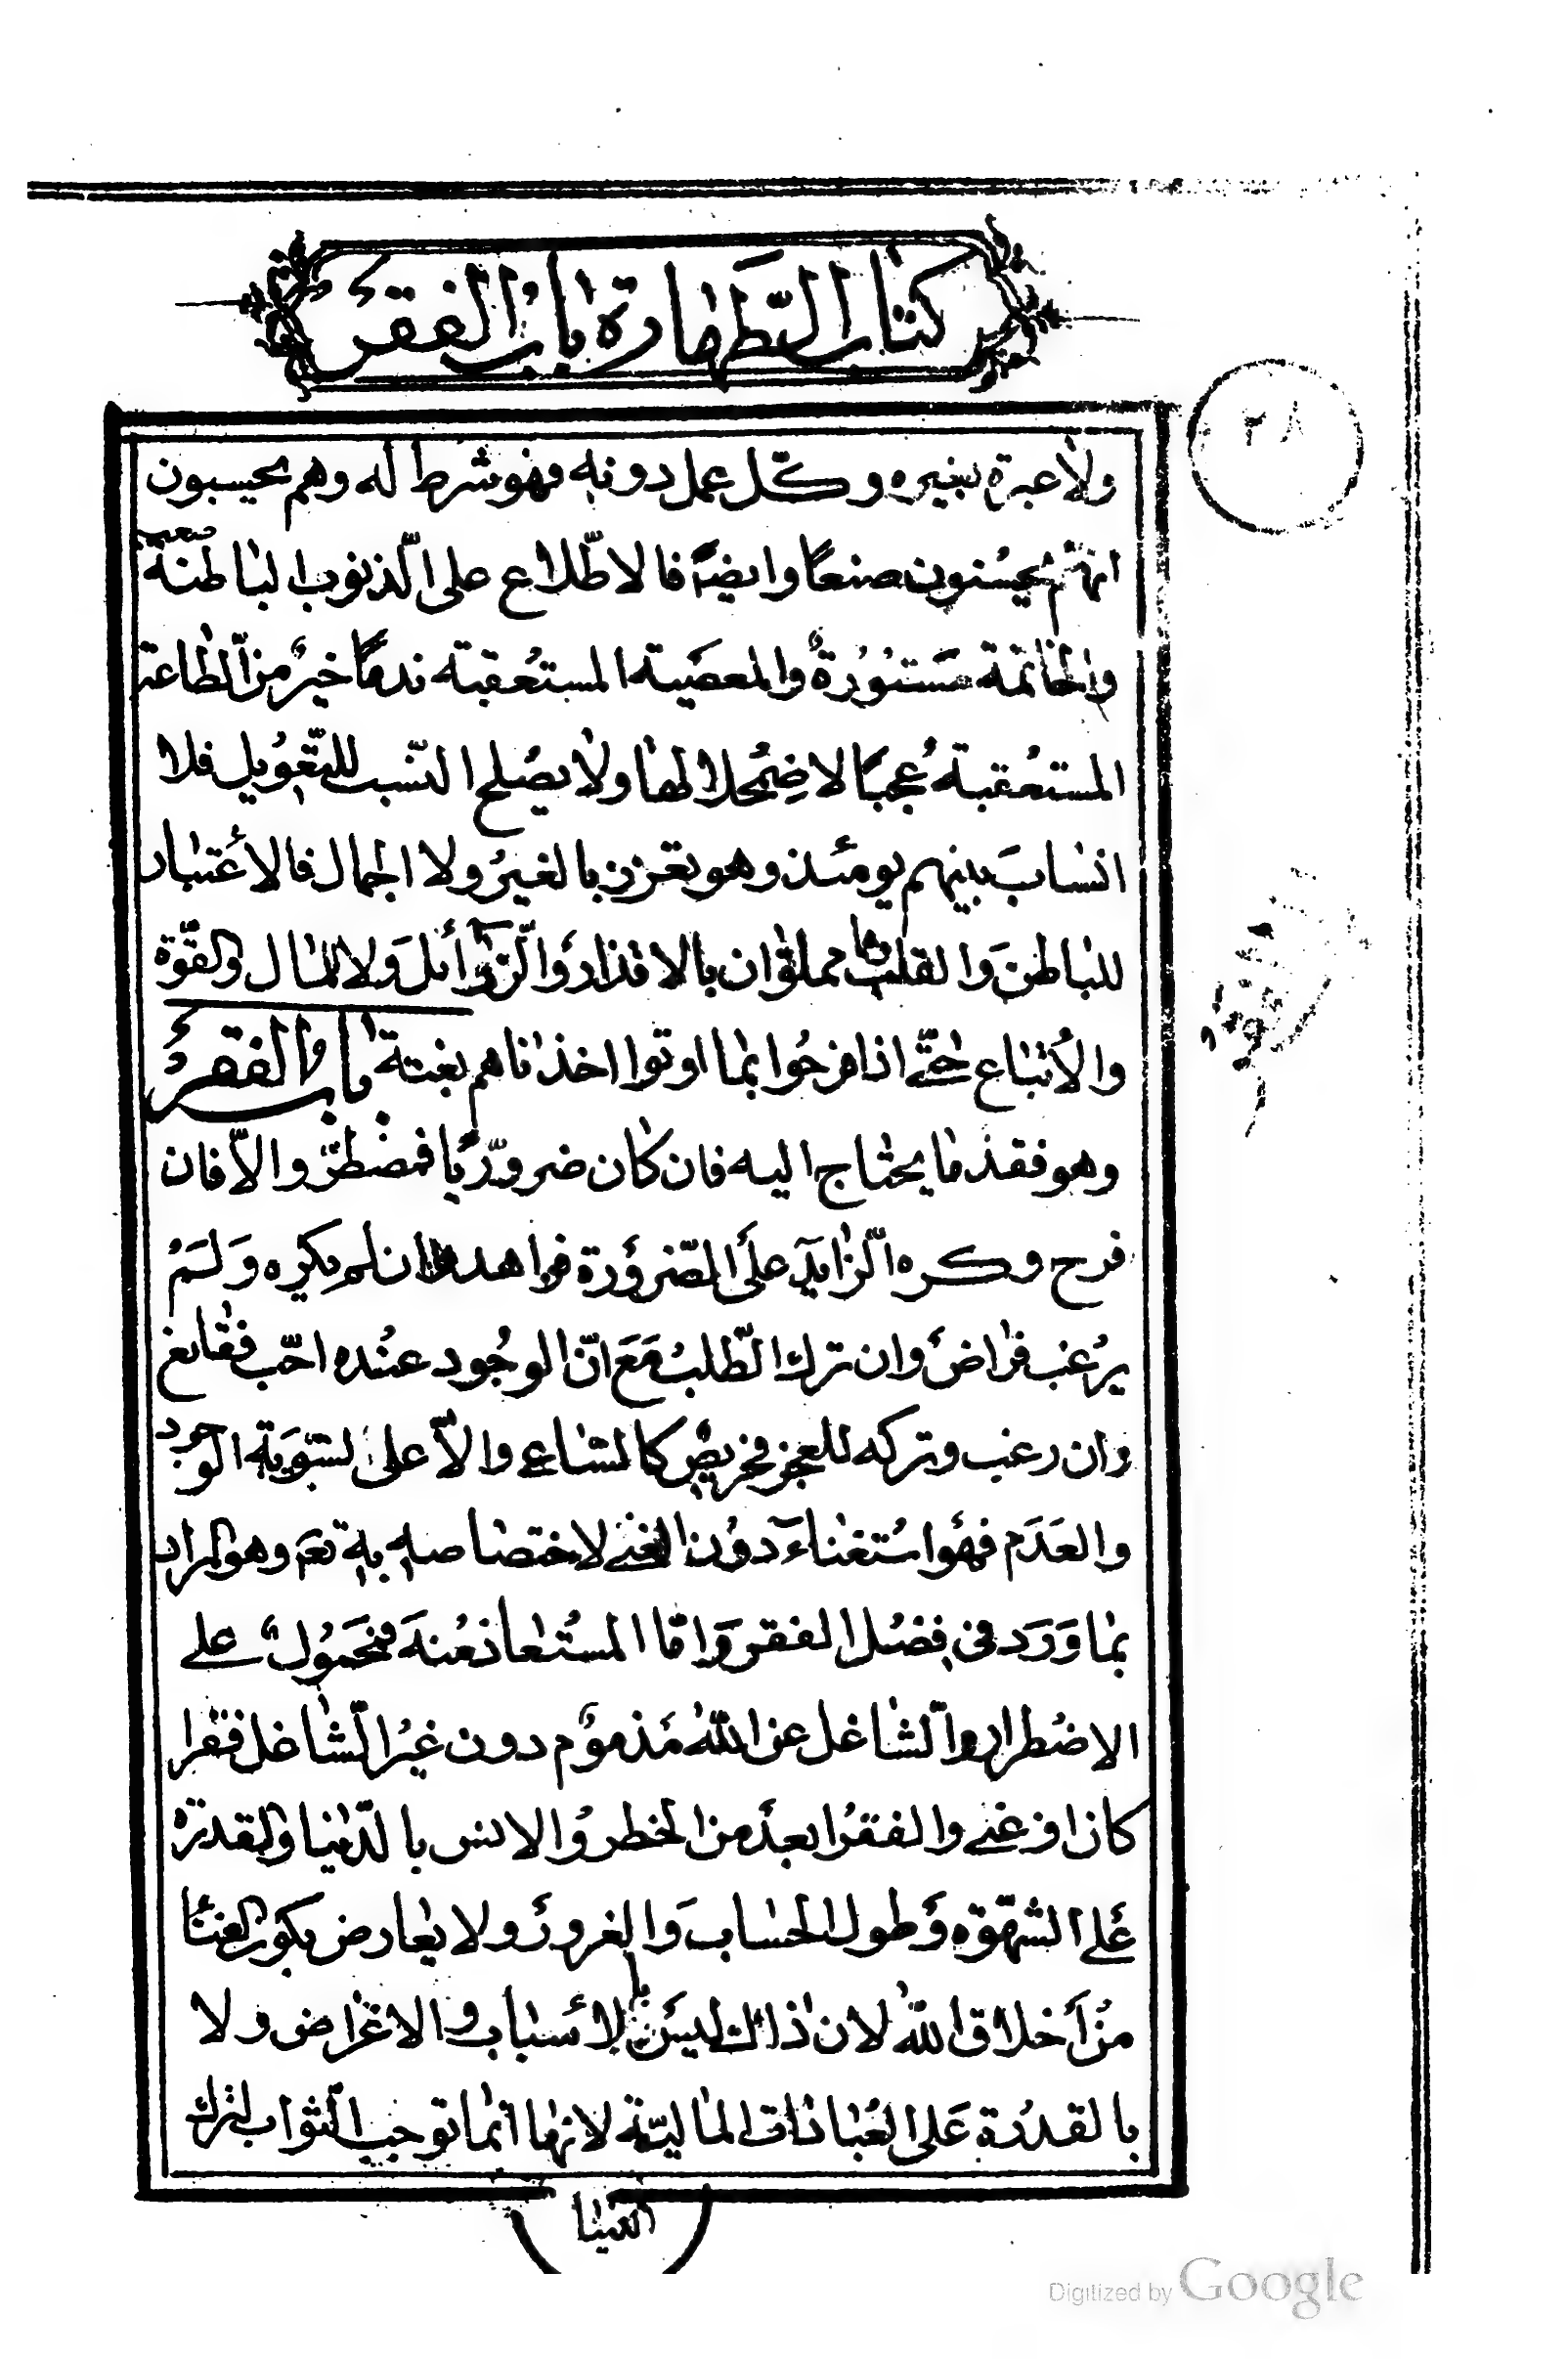 كتاب الطهارة باب الفقر
٣٨
ولا عبرة بغيره وكل عمل دونه فهو شرط له وهم يحسبون
انهم يحسنون صنعا وايضا فالاطلاع على الذنوب الباطنة صعب
والخاتمة مستورة والمعصية المستعقبة ندما خير من الطاعة
المستعقبة عجبا لاضمحلالها ولا يصلح النسب للتعويل فلا
انساب بينهم يومئذ وهو تعزز بالغير ولا الجمال فالاعتبار
للباطن والقلب مملوان بالاقذار والرذائل ولا المال والقوة
والأتباع حتى اذا فرحوا بما اوتوا اخذناهم بغتة باب الفقر
وهو فقد ما يحتاج اليه فان كان ضروريا فمضطر والا فان
فرح وكره الزايد على الضرورة فزاهد وان لم يكره ولم
يرغب فراض وان ترك الطلب مع ان الوجود عنده احب فقانع
وان رغب وتركه للعجز فحريص كالساعي والا على تسوية الوجود
والعدم فهو استغناء دون الغنى لاختصاصه به تعم وهو المراد
بما ورد في فضل الفقر واما المستعاذ عنه فمحمول على
الاضطرار والشاغل عن الله مذموم دون غير الشاغل فقرا
كان او غنى والفقر ابعد من الخطر والانس بالدنيا والقدرة
على الشهوة وطول الحساب والغرور ولا يعارض بكون الغنا
من أخلاق الله لان ذلك ليس بالأسباب والاغراض ولا
بالقدرة على العبادات المالية لانها انما توجب الثواب لترك
الدنيا
Digitized by Google